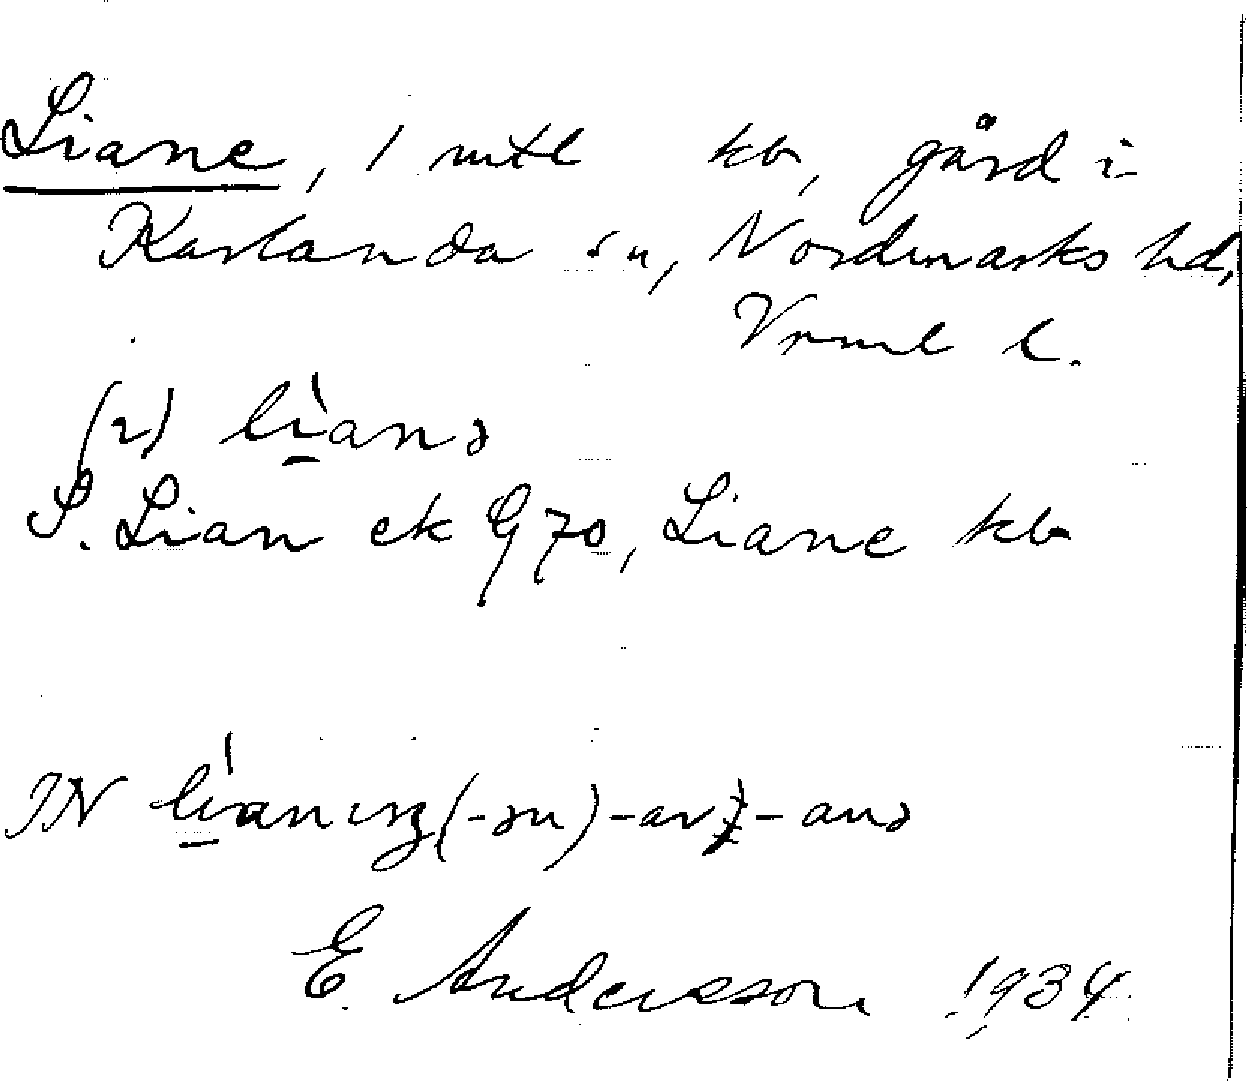 Liane, 1 mtl kb, gård i
Karlanda sn, Nordmarks hd,
Vrml l.
(2) lìanə
S. Lian ek G 70, Liane kb
IN lìaning (-ən) - av - anə
E. Andersson 1934